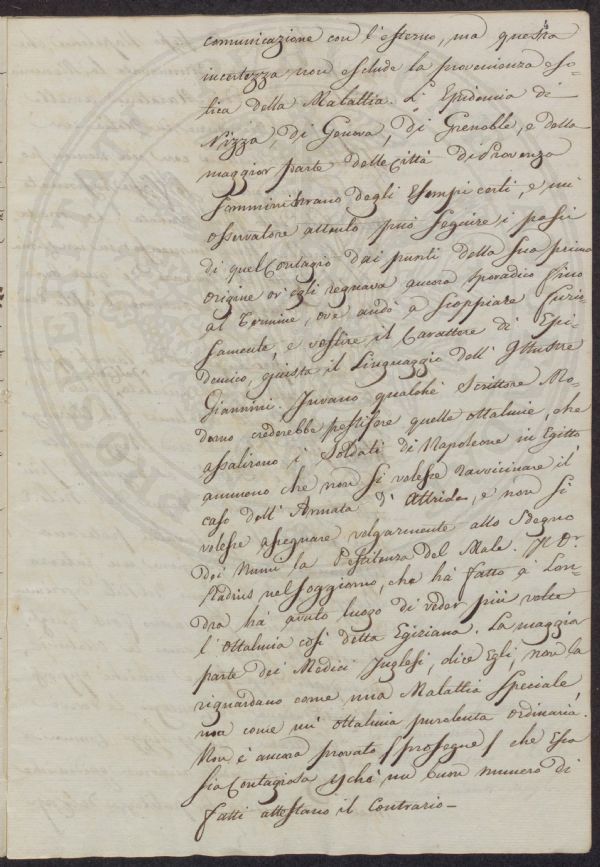 comunicazione con l'esterno, ma questa
incertezza non esclude la provenienza eso-
tica della Malattia. L'Epidemia di
Nizza, di Genova, di Grenoble, e della
maggior parte delle Città di Provenza
somministrano degli Esempi certi, e un
osservatore attento può seguire i passi
di quel Contagio dai punti della sua prima
origine ov'egli regnava ancora sporadico fino
al termine, ove andò a scoppiare furio-
samente, e vestire il Carattere di Epi-
demico, giusta il Linguaggio dell'Illustre
Giannini. Invano qualche Scrittore Mo-
derno crederebbe pestifere quelle ottalmie, che
assalirono i Soldati di Napoleone in Egitto
ammeno che non si volesse ravvicinare il
caso dell'Armata d'Attride, e non si
volesse assegnare volgarmente allo Sdegno
dei Numi la Pestilenza del Male. Il Dr.
Radius nel soggiorno, che ha fatto a Lon-
dra ha avuto luogo di veder più volte
l'ottalmia così detta Egiziana. La maggior
parte dei Medici Inglesi, dice Egli, non la
riguardano come una Malattia Speciale,
ma come un'ottalmia purulenta ordinaria.
Non è ancora provato / prosegue / che Essa
sia Contagiosa, chè un buon numero di
fatti attestano il Contrario_